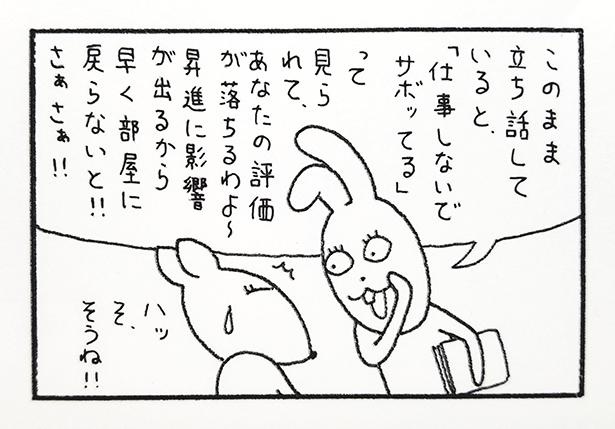 このまま
立ち話して
いると、
「仕事しないで
サボッてる」
って
見ら
れて、
あなたの評価
が落ちるわよ〜
昇進に影響
が出るから
早く部屋に
戻らないと!!
さぁさぁ!!
ハッ
そ、
そうね!!